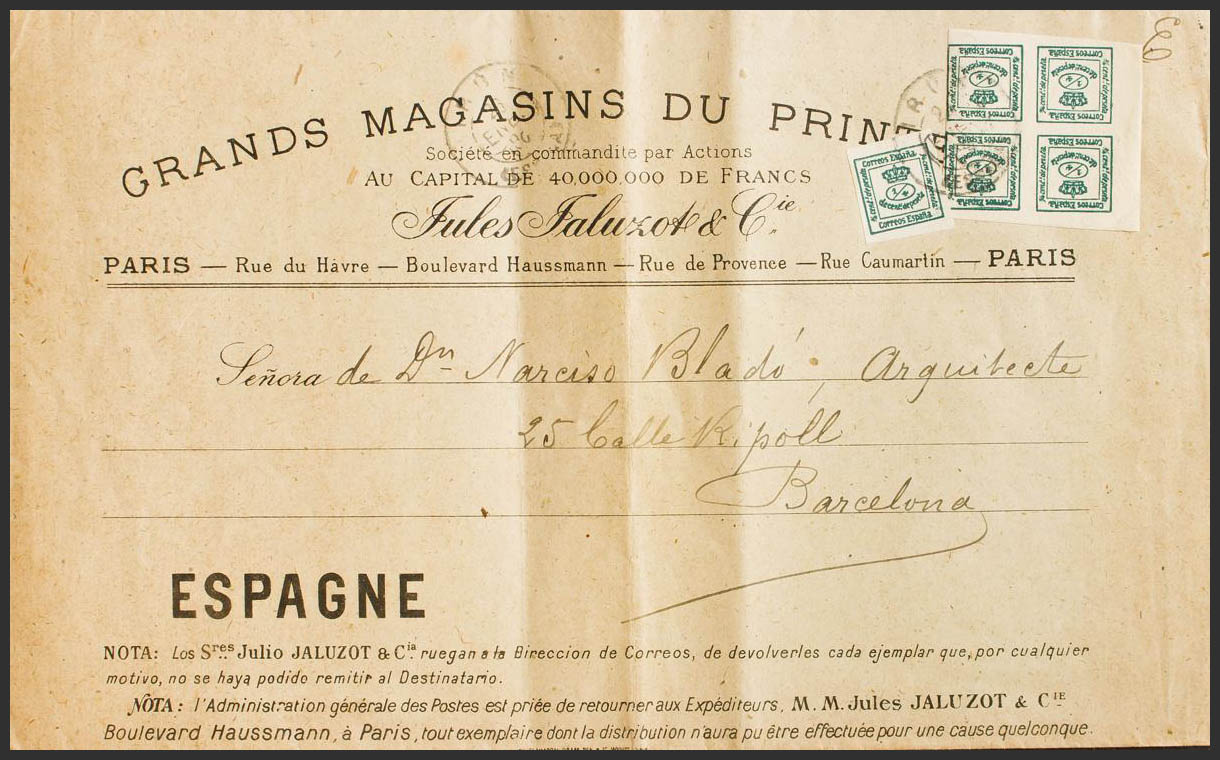 GRANDS MAGASINS DU PRIN
Société en commandite par Actions
AU CAPITAL DE 40.000.000 DE FRANCS
Jules Jaluzot & Cie
PARIS — Rue du Hâvre — Boulevard Haussmann — Rue de Provence — Rue Caumartin — PARIS
Correos España
1/4
de cent. de peseta
Correos España
Señora de Dn Narciso Bladó, Arquitecte
25 Calle Ripoll
Barcelona
ESPAGNE
NOTA: Los Sres Julio JALUZOT & Cia ruegan a la Direccion de Correos, de devolverles cada ejemplar que, por cualquier
motivo, no se haya podido remitir al Destinatario.
NOTA: l'Administration générale des Postes est priée de retourner aux Expéditeurs, M.M. Jules JALUZOT & CIE
Boulevard Haussmann, à Paris, tout exemplaire dont la distribution n'aura pu être effectuée pour une cause quelconque.